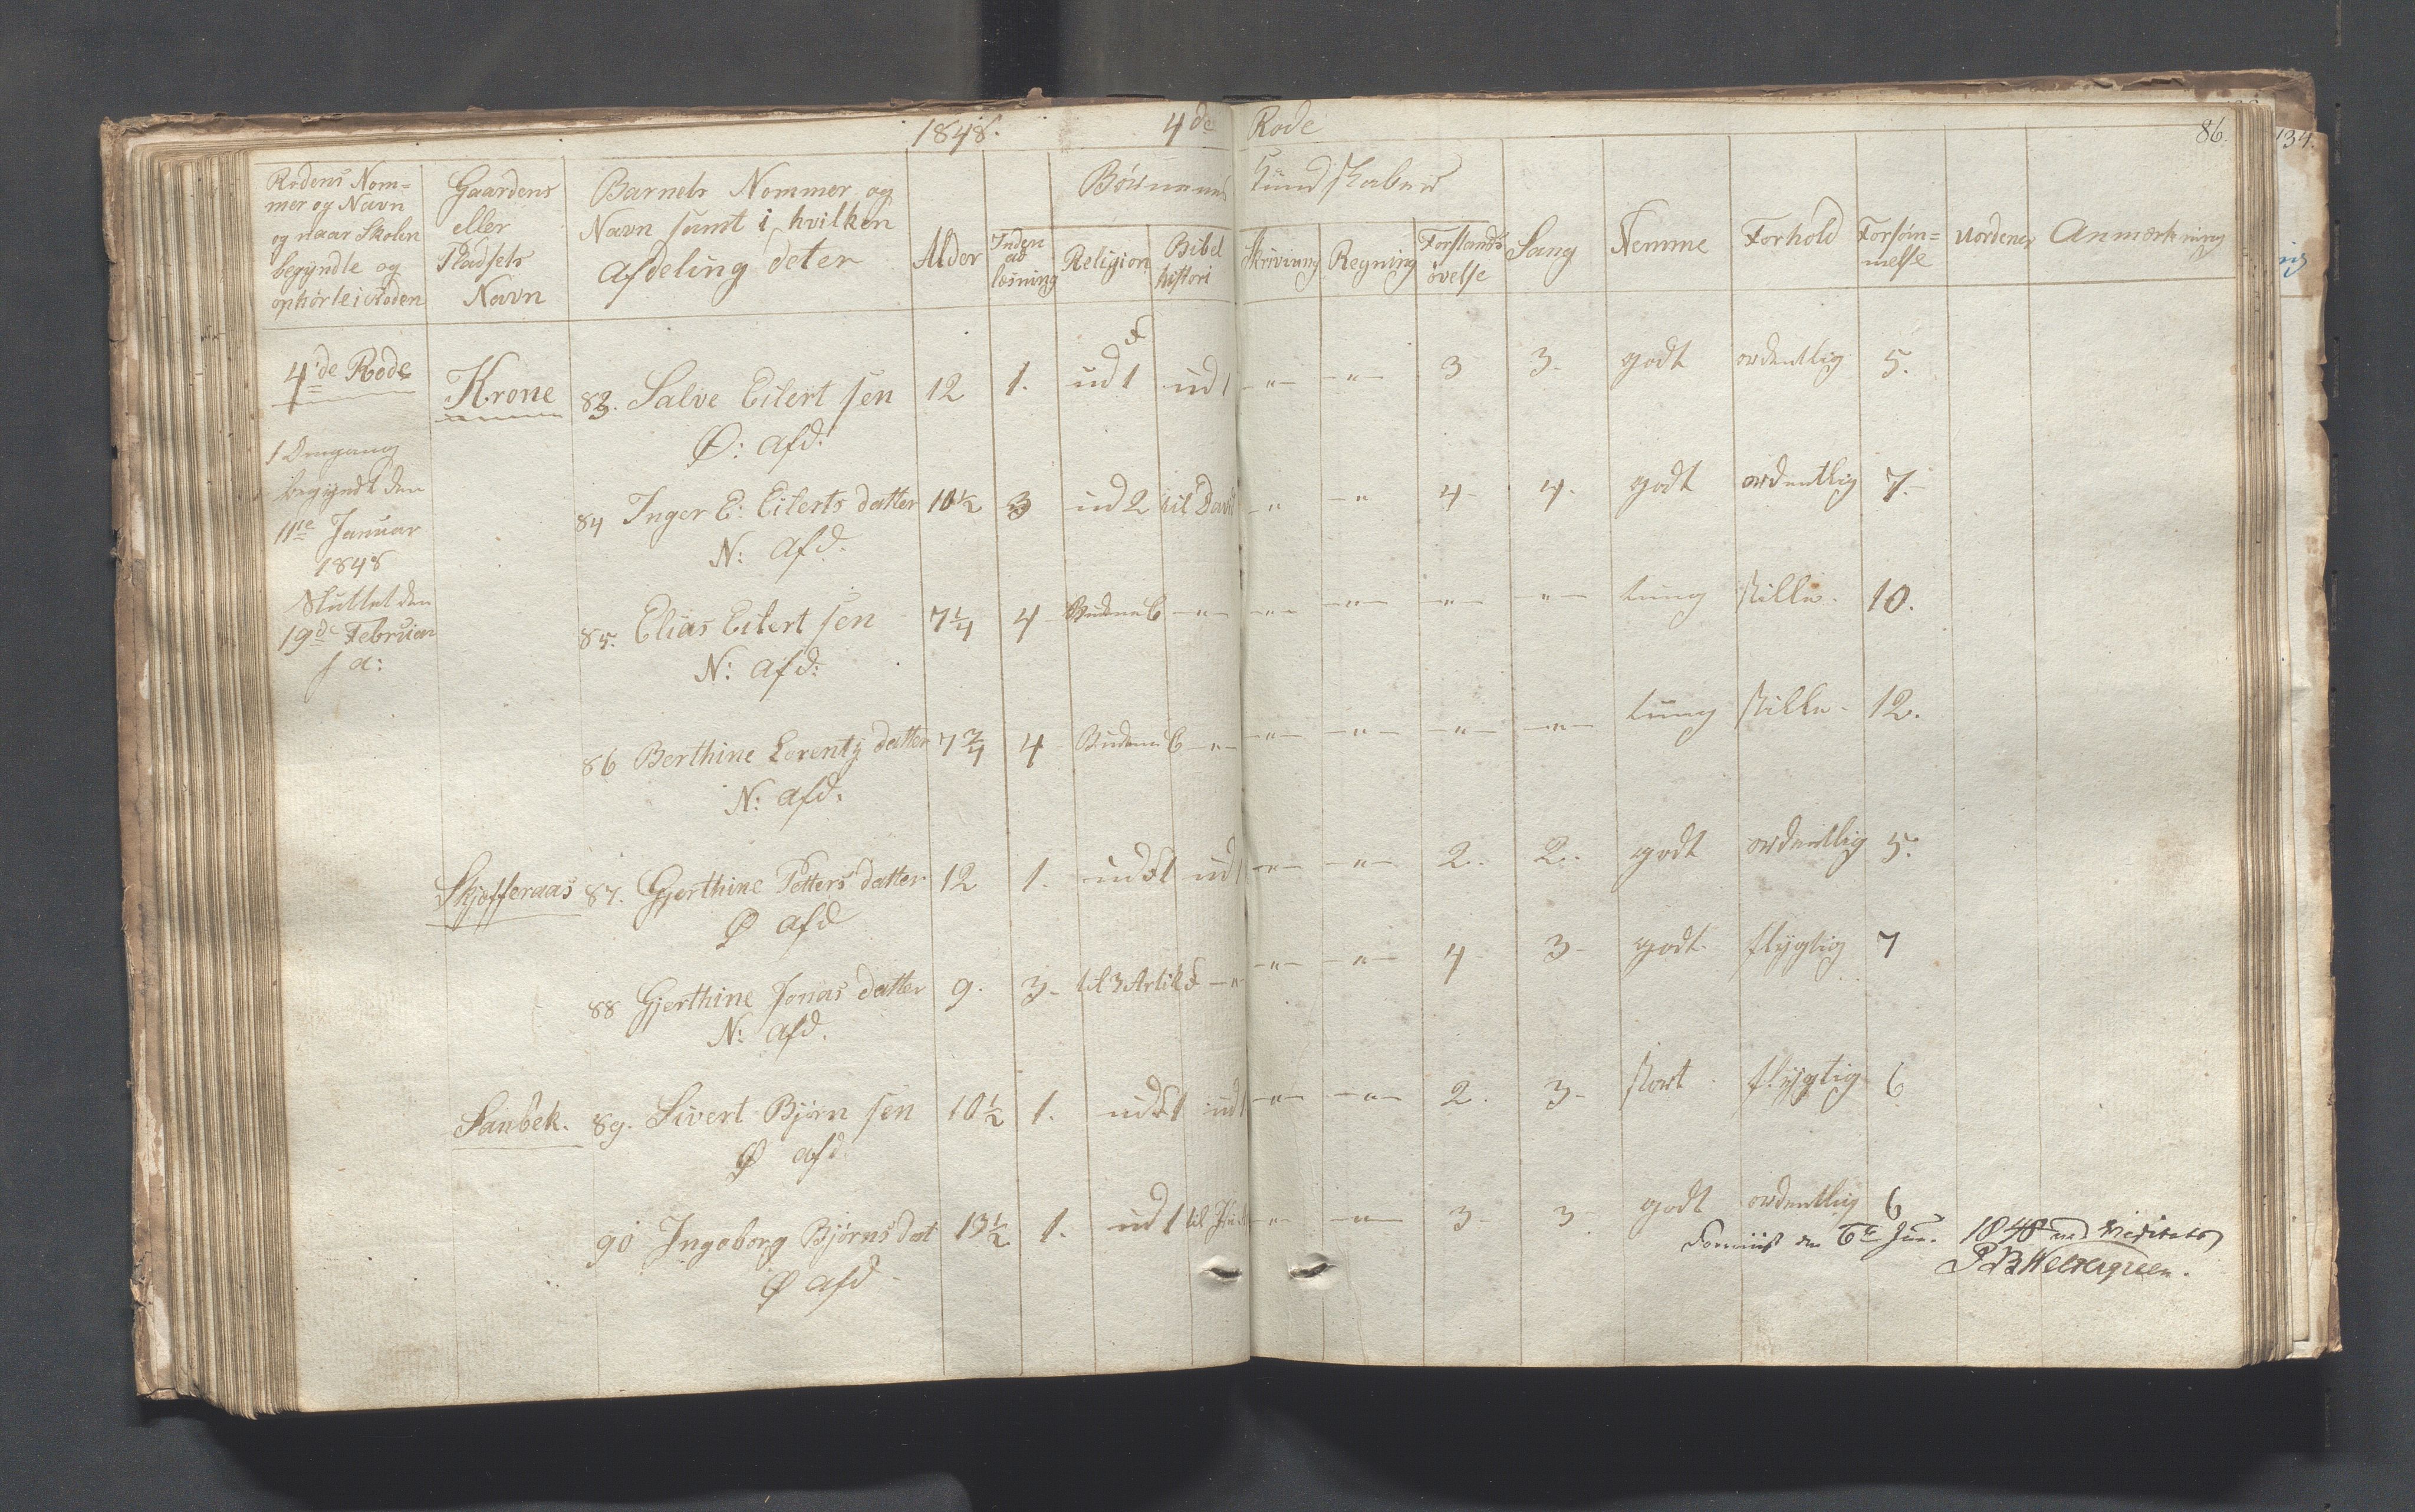 1848. 4de Rode 86.
134.
Rodens Nom=
mer og Navn
og naar Skolen
begyndte og
ophørte i Roden
Gaardens
eller
Pladsets
Navn
Barnets Nommer og
Navn samt i hvilken
Afdeling det er
Alder
Børnenes Kundskaber
Inden
ad
læsning
Religion
Bibel
histori
Skrivning
Regning
Forstands
øvelse
Sang
Nemme
Forhold
Forsøm=
melse
Uorden
Anmærkning
4de Rode Krone 83. Salve Eilert sen 12 1. ud 1 ud 1 —"— —"— 3 3- godt ordentlig 5.
Ø: Afd:
1 Omgang
begyndt den
11te Januar
1848
Sluttet den
19de Februar
s. a:
84 Inger E: Eilerts datter 10½ 3 ud 2 til David —" —" 4- 4. godt ordentlig 7.-
N: Afd.
85. Elias Eilert sen 7¼ 4 Budene 6 —"— —"— —"— —"— —"— tung stille- 10.
N: Afd:
86 Berthine Lorentz datter 7¾ 4 Budene 6 —"— —"— —"— —"— —"— tung stille- 12.
N: Afd.
Skjofferaas 87. Gjerthine Petters datter 12 1. ud F 1 ud 1 —"— —"— 2.. 2.. godt ordentlig 5.
Ø Afd
88 Gjerthine Jonas datter 9. 3- til 3 Artik F —" —"— —"— 4- 3- godt- flygtig 7
N: Afd.
Sanbek. 89. Sivert Bjørn sen 10½ 1. ud F 1 ud 1 —"— —"— 2. 3- stort flygtig 6
Ø Afd
90 Ingeborg Bjørns dat 13½ 1. ud 1 til —"— —"— 3- 3- godt ordentlig 6
Ø Afd-
den 6te Jun. 1848 ved Visitats